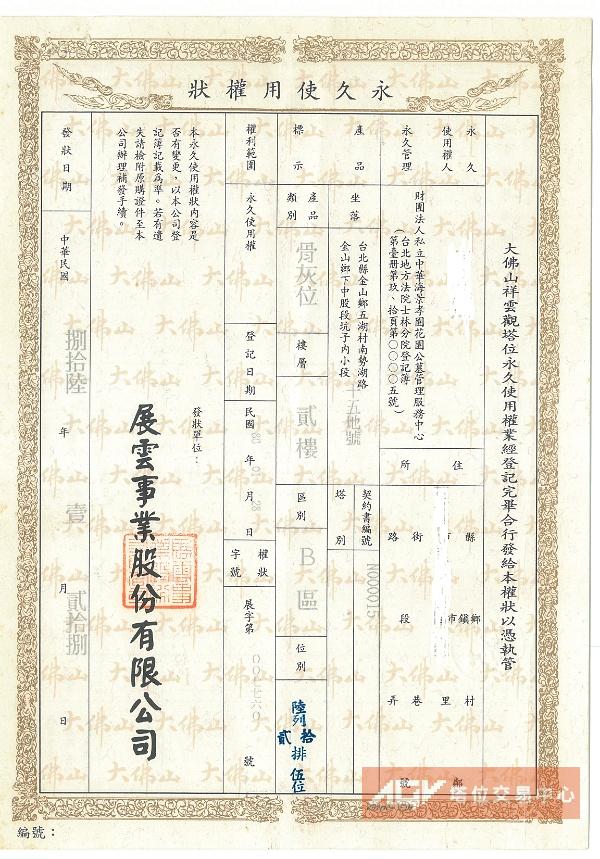 永久使用權狀
大佛山祥雲觀塔位永久使用權業經登記完畢合行發給本權狀以憑執管
永久使用權人
住所
縣市
鄉鎮市
村里
鄰
路街
段
巷弄
號
永久管理
財團法人私立中華海景孝園花園公墓管理服務中心
台北地方法院士林分院登記簿
(第臺冊第玖、拾頁第〇〇〇〇五號)
產品
坐落
台北縣金山鄉五湖村南勢湖路
金山鄉下中股段坑子內小段
十五地號
契約書編號
N000015
塔別
標示
產品類別
骨灰位
樓層
貳樓
區別
B區
位別
陸列
拾貳排
伍位
權利範圍
永久使用權
登記日期
民國
年
月28日
權狀字號
展字第
號
本永久使用權狀內容是
否有變更,以本公司登
記簿記載為準。若有遺
失請檢附原購證件至本
公司辦理補發手續。
發狀單位:
展雲事業股份有限公司
發狀日期
中華民國
捌拾陸
年
壹
月
貳拾捌
日
編號:
大佛山
塔位交易中心